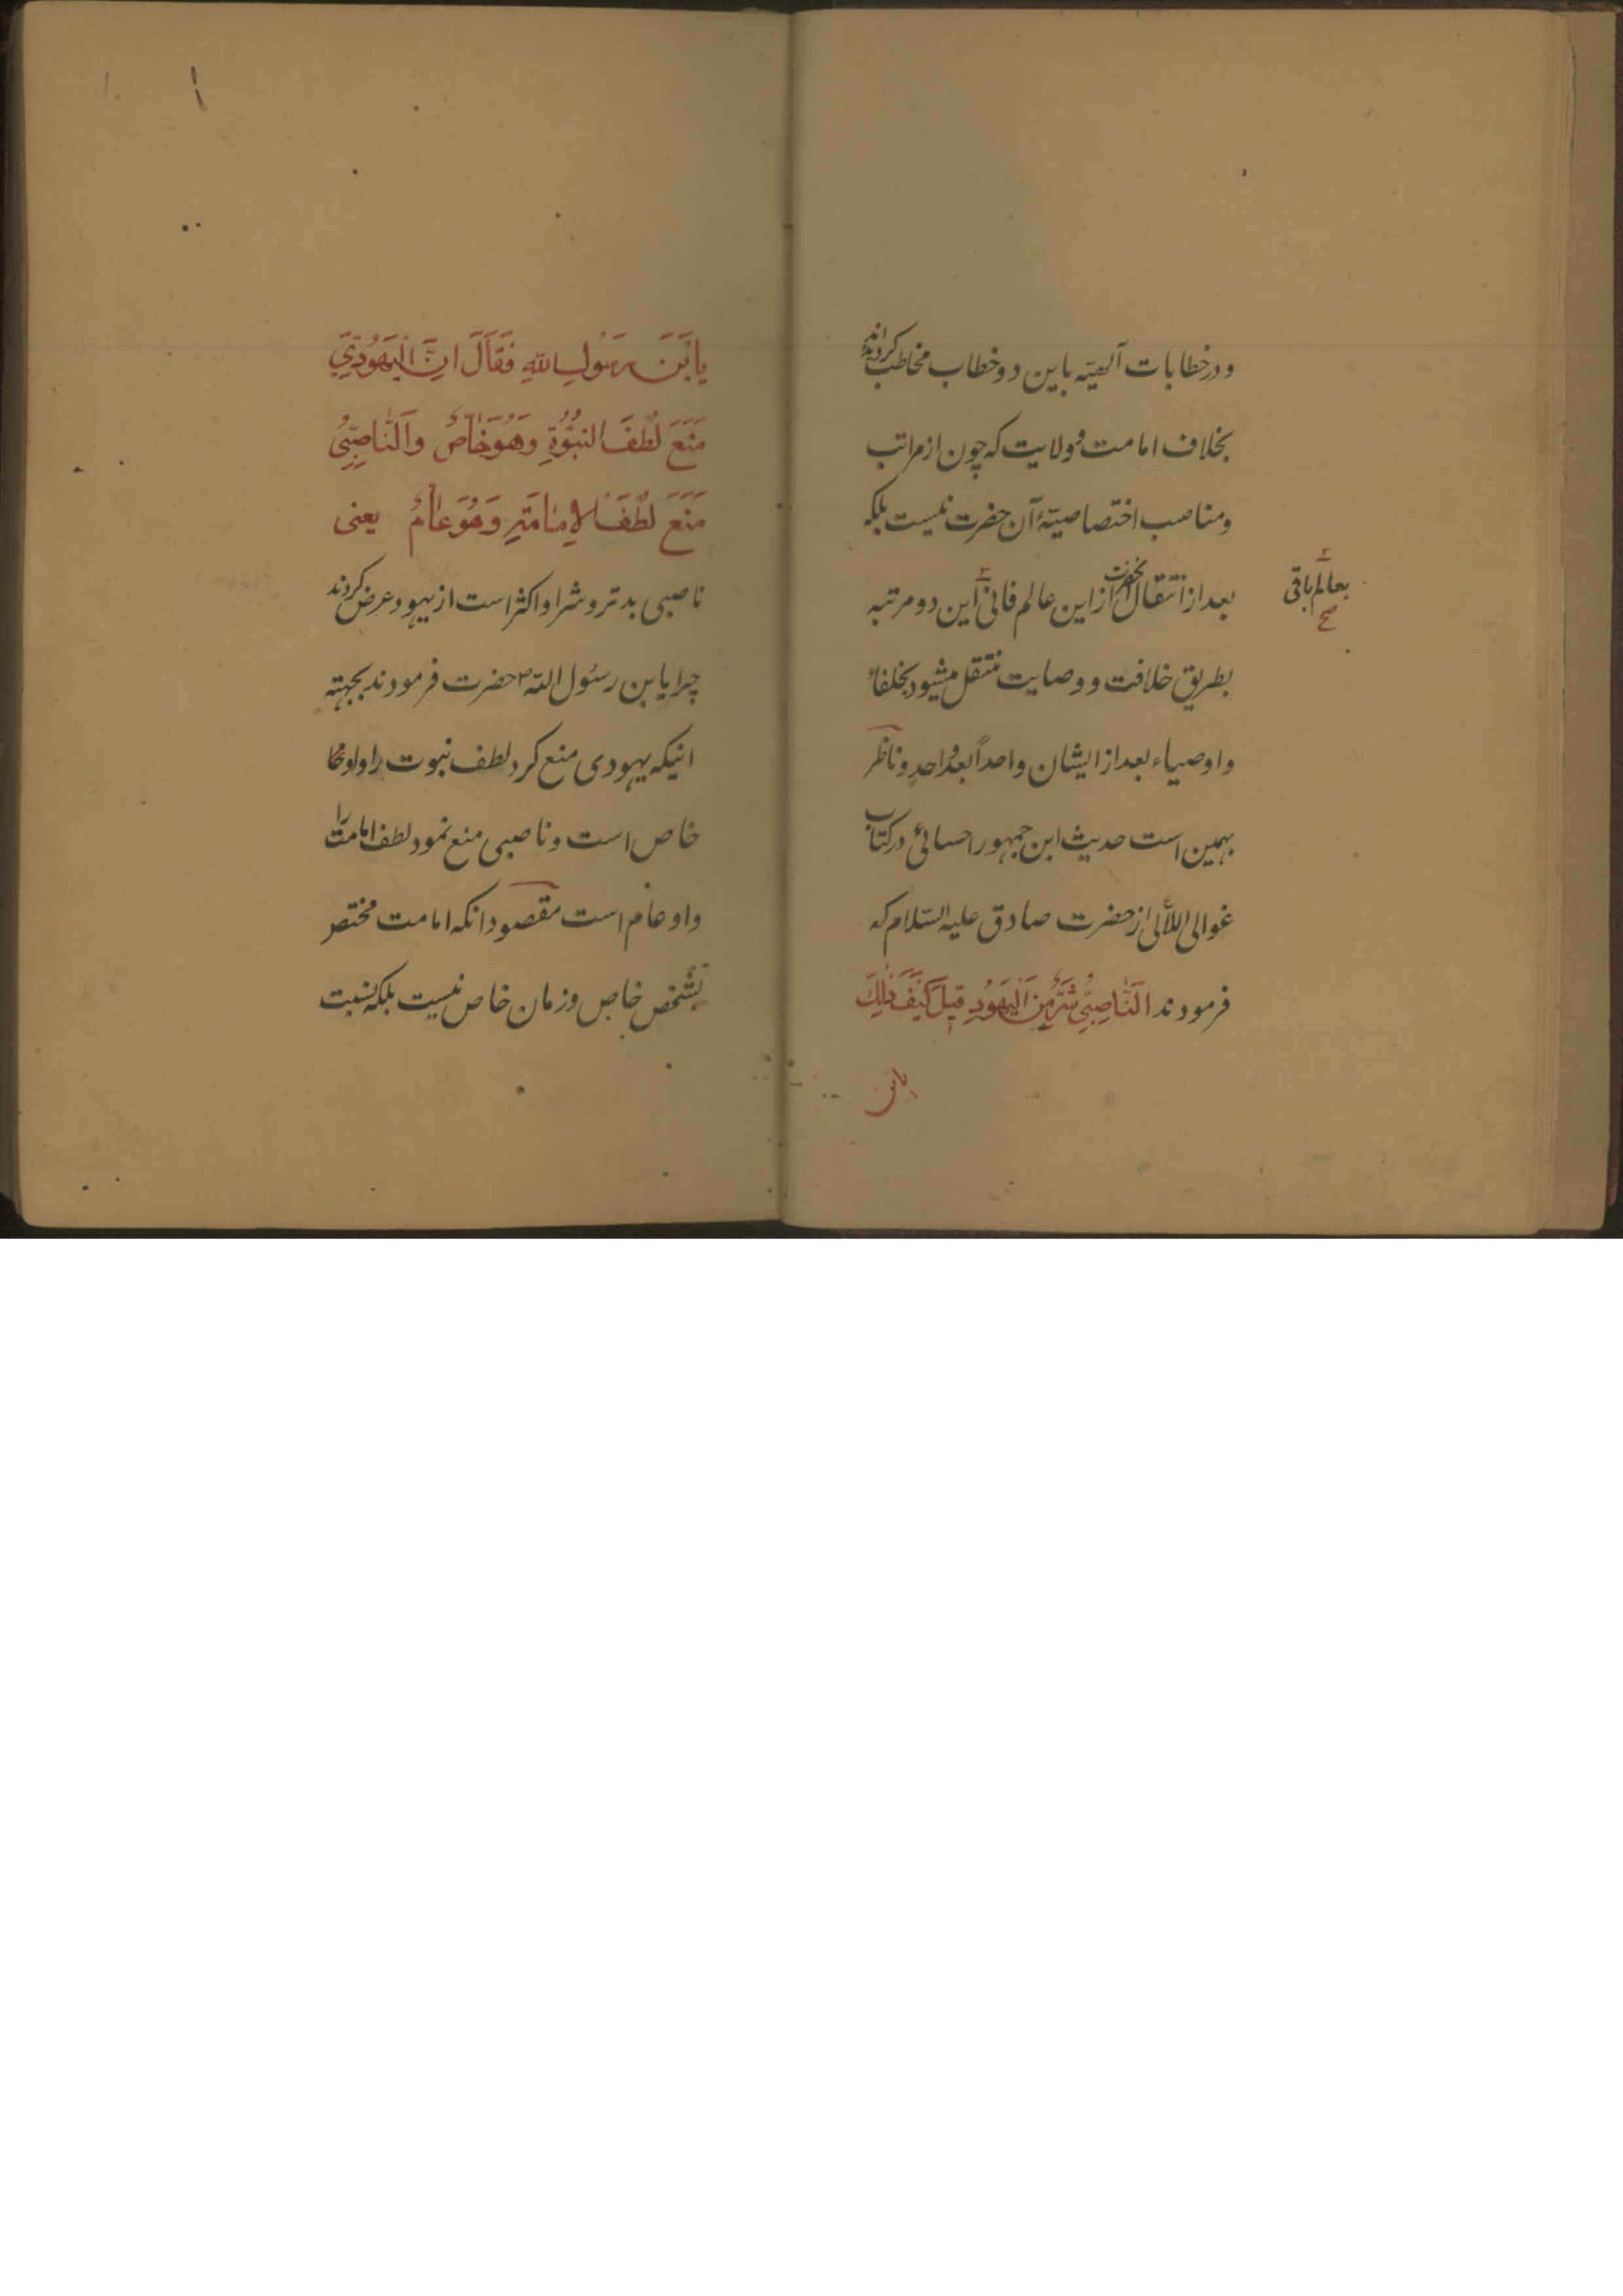 و در خطابات آلهیّه باین دو خطاب مخاطب کردیده اند
بخلاف امامت و ولایت که چون از مراتب
و مناصب اختصاصیّهٔ آن حضرت نیست بلکه
بعد از انتقال آنحضرت از این عالم فانی این دو مرتبه
بعالم باقی
صح
بطریق خلافت و وصایت منتقل میشود بخلفاء
و اوصیاء بعد از ایشان واحداً بعد واحدٍ و ناظر
بهمین است حدیث ابن جمهور احسائی در کتاب
غوالی اللآلی از حضرت صادق علیه السّلام که
فرمودند اَلنّاصِبِیُّ شَرٌّ مِنَ اَلْیَهُودِ قیلَ کَیْفَ ذلِكَ
یابن
یا بْنَ رَسُولِ اللّهِ فَقالَ اِنَّ الْیَهُودِيَّ
مَنَعَ لُطْفَ النُبُوَّةِ وَهُوَ خاصٌّ وَالنّاصِبِیُّ
مَنَعَ لُطْفَ الاِمامَةِ وَهُوَ عامٌّ یعنی
ناصبی بدتر و شر او اکثر است از یهود عرض کردند
چرا یابن رسُول اللّه ص حضرت فرمودند بجهته
اینکه یهودی منع کرد لطف نبوت را و او
خاص است و ناصبی منع نمود لطف امامت را
و او عام است مقصود انکه امامت مختص
بشخص خاص و زمان خاص نیست بلکه نسبت